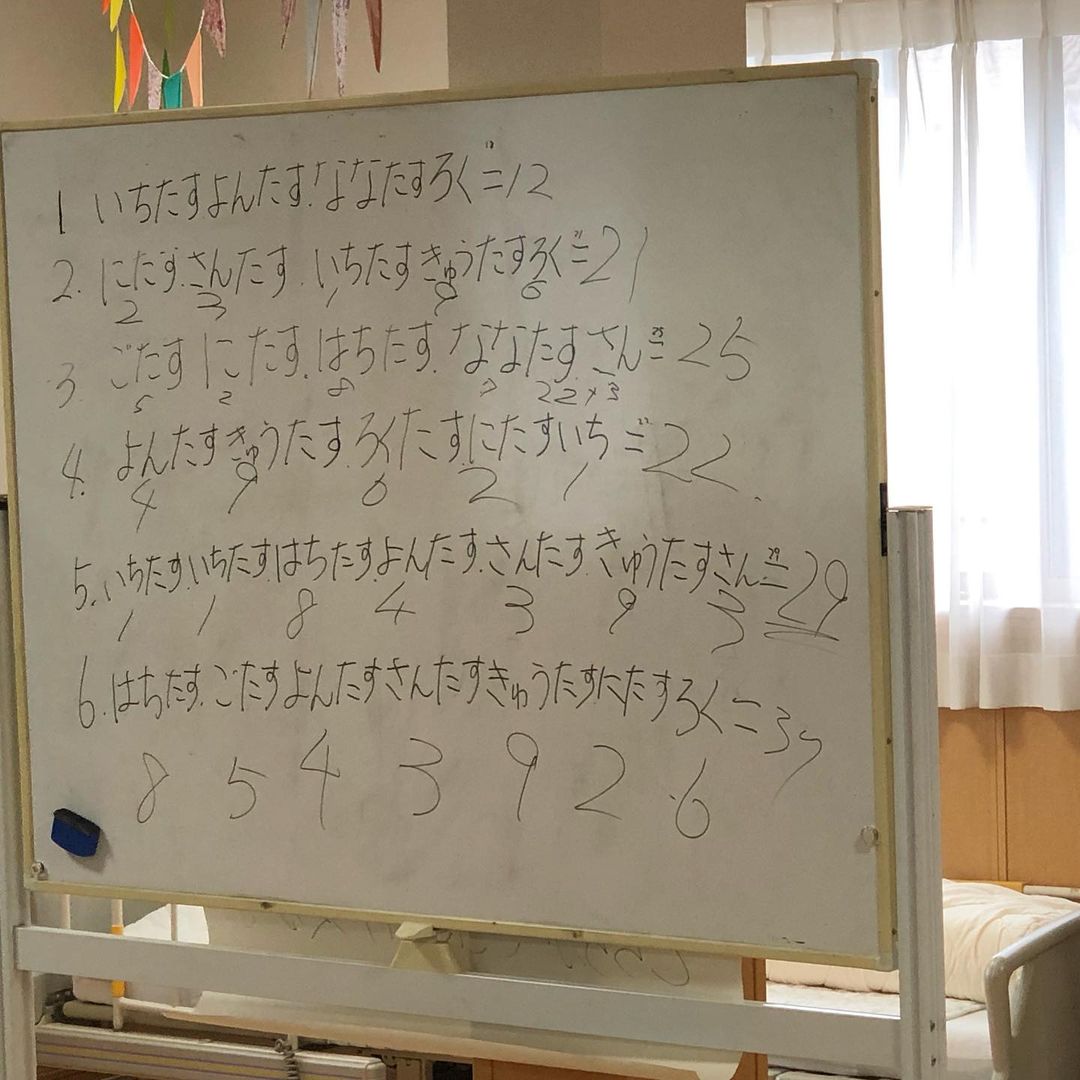 1 いちたすよんたす.ななたすろく=12
2. にたす.さんたす.いちたすきゅうたすろく=21
2 3 1 9 6
3. ごたすにたす.はちたす.ななたすさん=25
5 2 8 7 22+3
4. よんたすきゅうたす.ろくたすにたすいち=22
4 9 6 2 1
5. いちたす.いちたす.はちたす.よんたす.さんたす.きゅうたすさん=29
1 1 8 4 3 9 3
6. はちたす.ごたすよんたすさんたすきゅうたすにたすろく=37
8 5 4 3 9 2 6